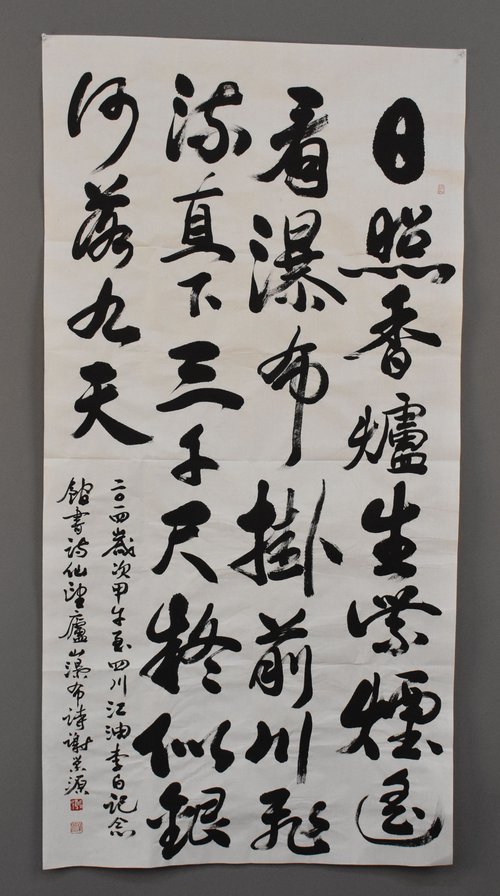 日照香爐生紫煙遙
看瀑布掛前川飛
流直下三千尺疑似銀
河落九天
二〇一四歲次甲午四川江油李白記念
館書詩仙望廬山瀑布詩謝榮源